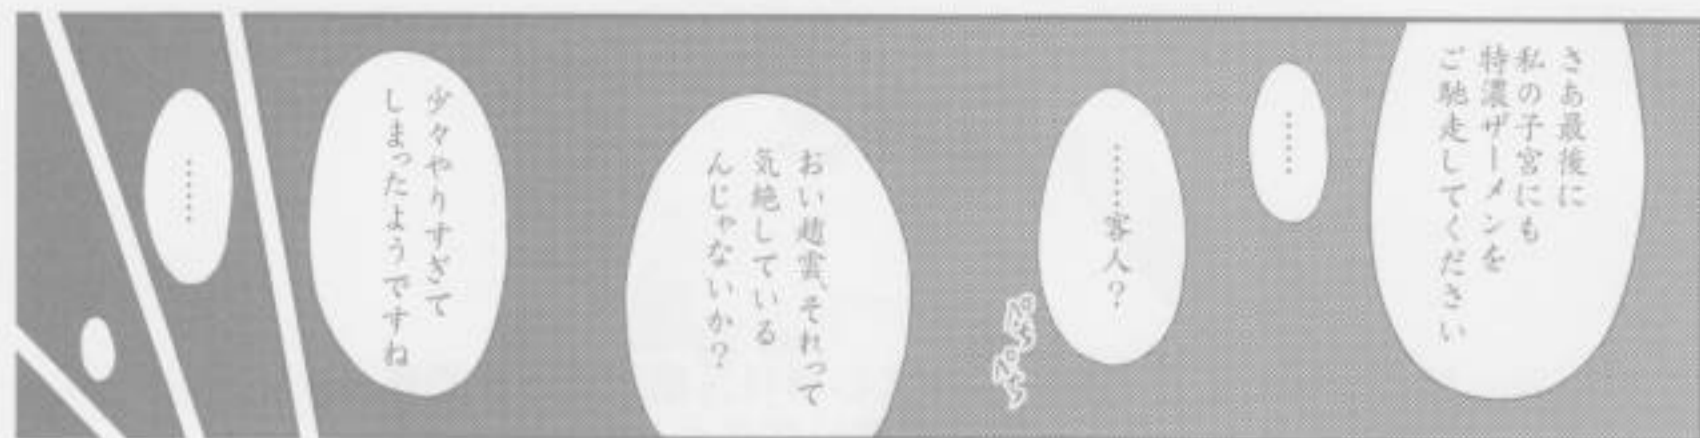 さあ最後に
私の子宮にも
特濃ザーメンを
ご馳走してください
……
……客人？
ぺち
ぺち
おい趙雲、それって
気絶している
んじゃないか？
少々やりすぎて
しまったようですね
……